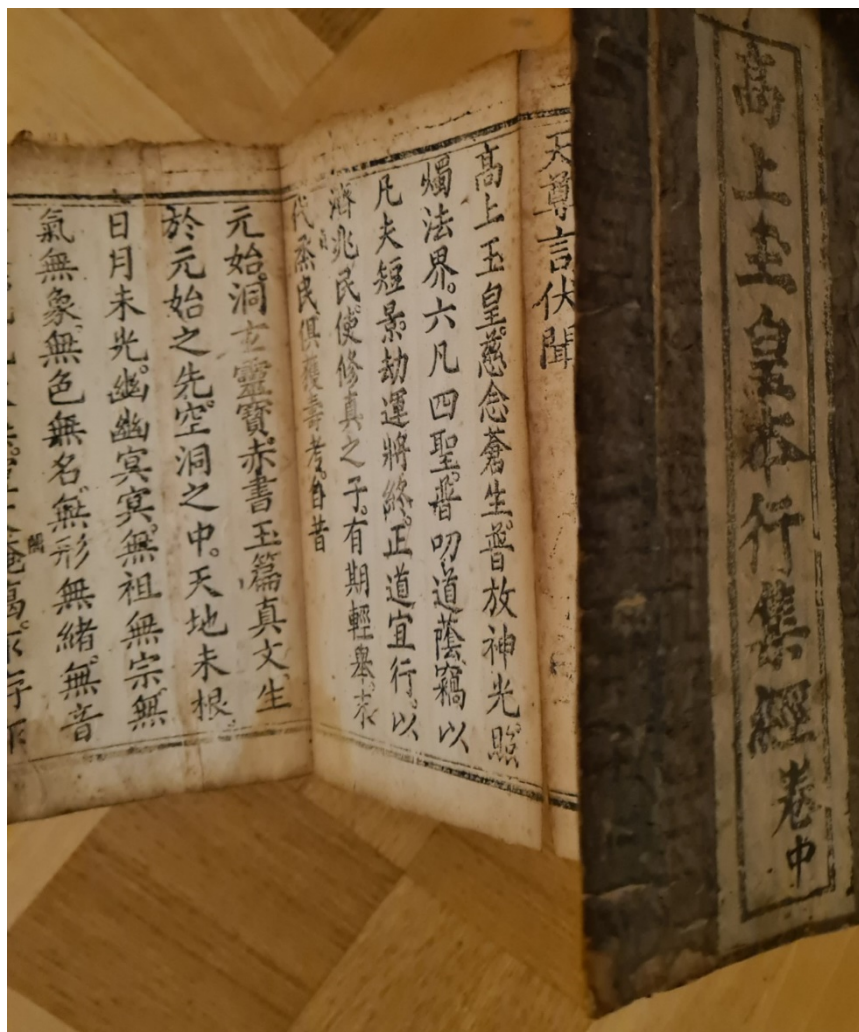 高上玉皇本行集經卷中
天尊言伏聞
高上玉皇。慈念蒼生。普放神光。照
燭法界。六凡四聖。普叨道蔭。竊以
凡夫短景。劫運將終。正道宜行。以
濟兆民。使修真之子。有期輕舉。末
代烝民俱獲壽考。自昔
元始。洞玄靈寶。赤書玉篇真文。生
於元始之先。空洞之中。天地未根。
日月未光。幽幽冥冥。無祖無宗。無
氣無象。無色無名。無形無緒。無音